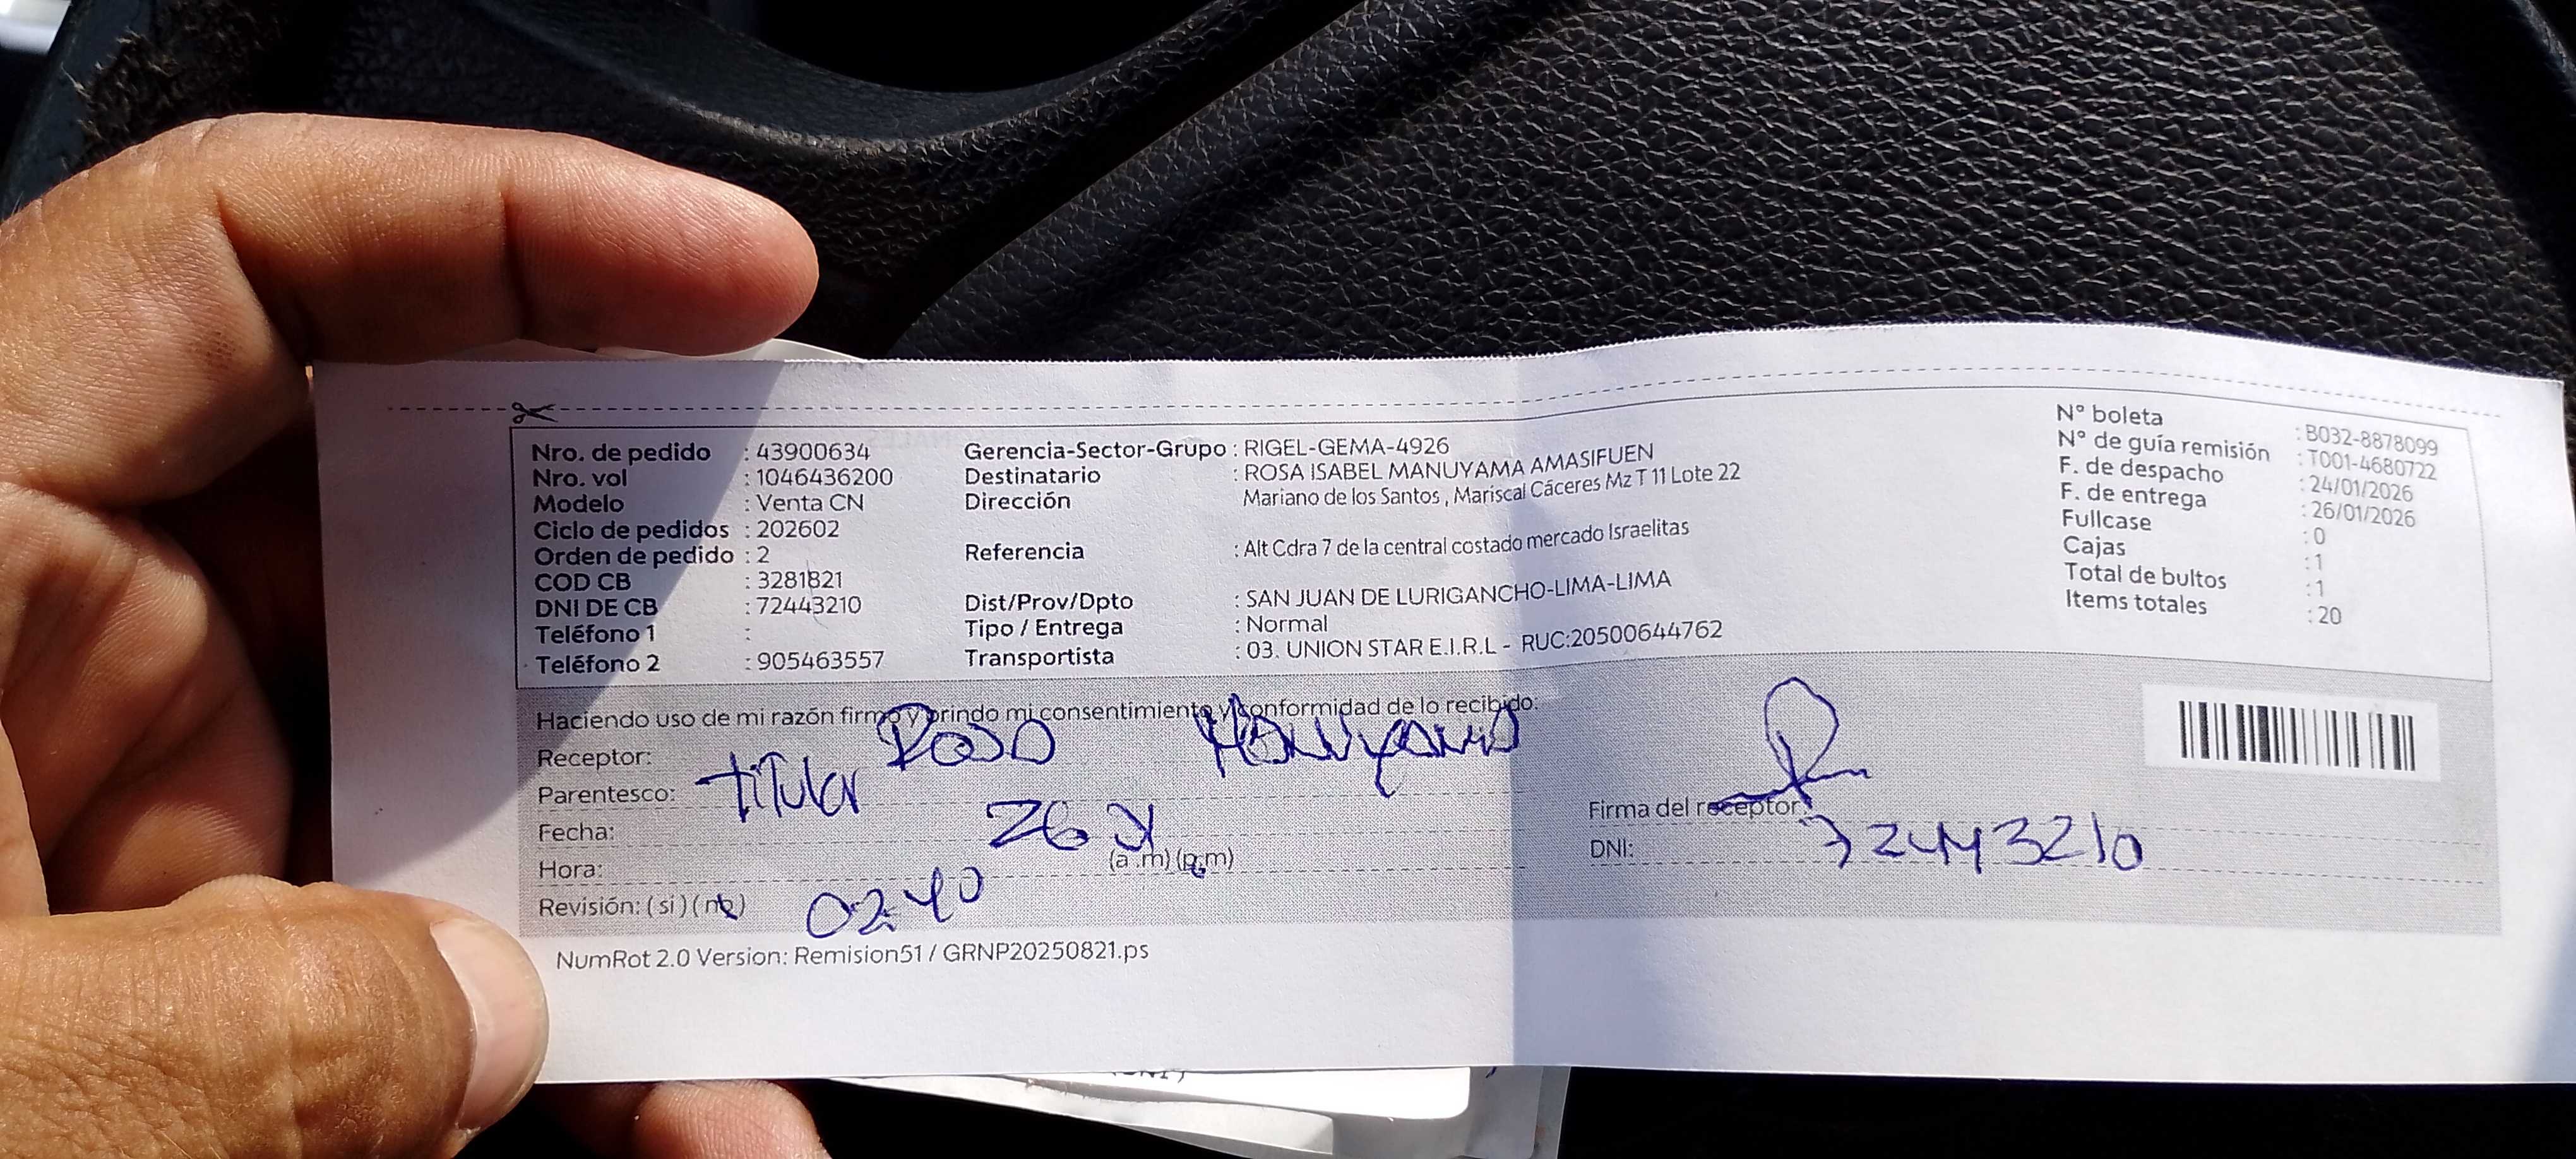 Nro. de pedido : 43900634
Nro. vol : 1046436200
Modelo : Venta CN
Ciclo de pedidos : 202602
Orden de pedido : 2
COD CB : 3281821
DNI DE CB : 72443210
Teléfono 1 :
Teléfono 2 : 905463557
Gerencia-Sector-Grupo : RIGEL-GEMA-4926
Destinatario : ROSA ISABEL MANUYAMA AMASIFUEN
Dirección Mariano de los Santos , Mariscal Cáceres Mz T 11 Lote 22
Referencia : Alt Cdra 7 de la central costado mercado Israelitas
Dist/Prov/Dpto : SAN JUAN DE LURIGANCHO-LIMA-LIMA
Tipo / Entrega : Normal
Transportista : 03. UNION STAR E.I.R.L - RUC:20500644762
N° boleta : B032-8878099
N° de guía remisión : T001-4680722
F. de despacho : 24/01/2026
F. de entrega : 26/01/2026
Fullcase : 0
Cajas : 1
Total de bultos : 1
Items totales : 20
Haciendo uso de mi razón firmo y brindo mi consentimiento y conformidad de lo recibido:
Receptor: Rosa Manuyama
Parentesco: titular
Fecha: 26
Hora: 02:40 (a .m) (p.m)
Revisión: ( si ) ( no )
Firma del receptor:
DNI: 72443210
NumRot 2.0 Version: Remision51 / GRNP20250821.ps